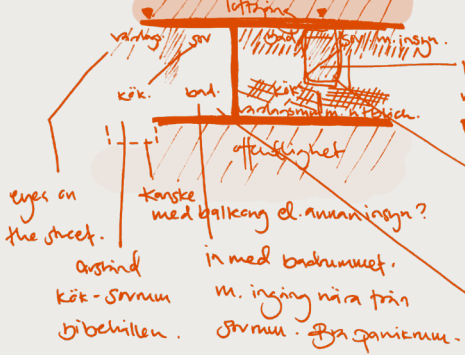 loftgång
vardag. sov
bad. sov m. insyn.
kök. bad. kök
vardagsrum m. utblick.
offentlighet
eyes on
the street.
kanske
med balkong el. annan insyn?
avstånd
kök - sovrum
bibehållen.
in med badrummet.
m. ingång nära från
sovrum. Bra panikrum.